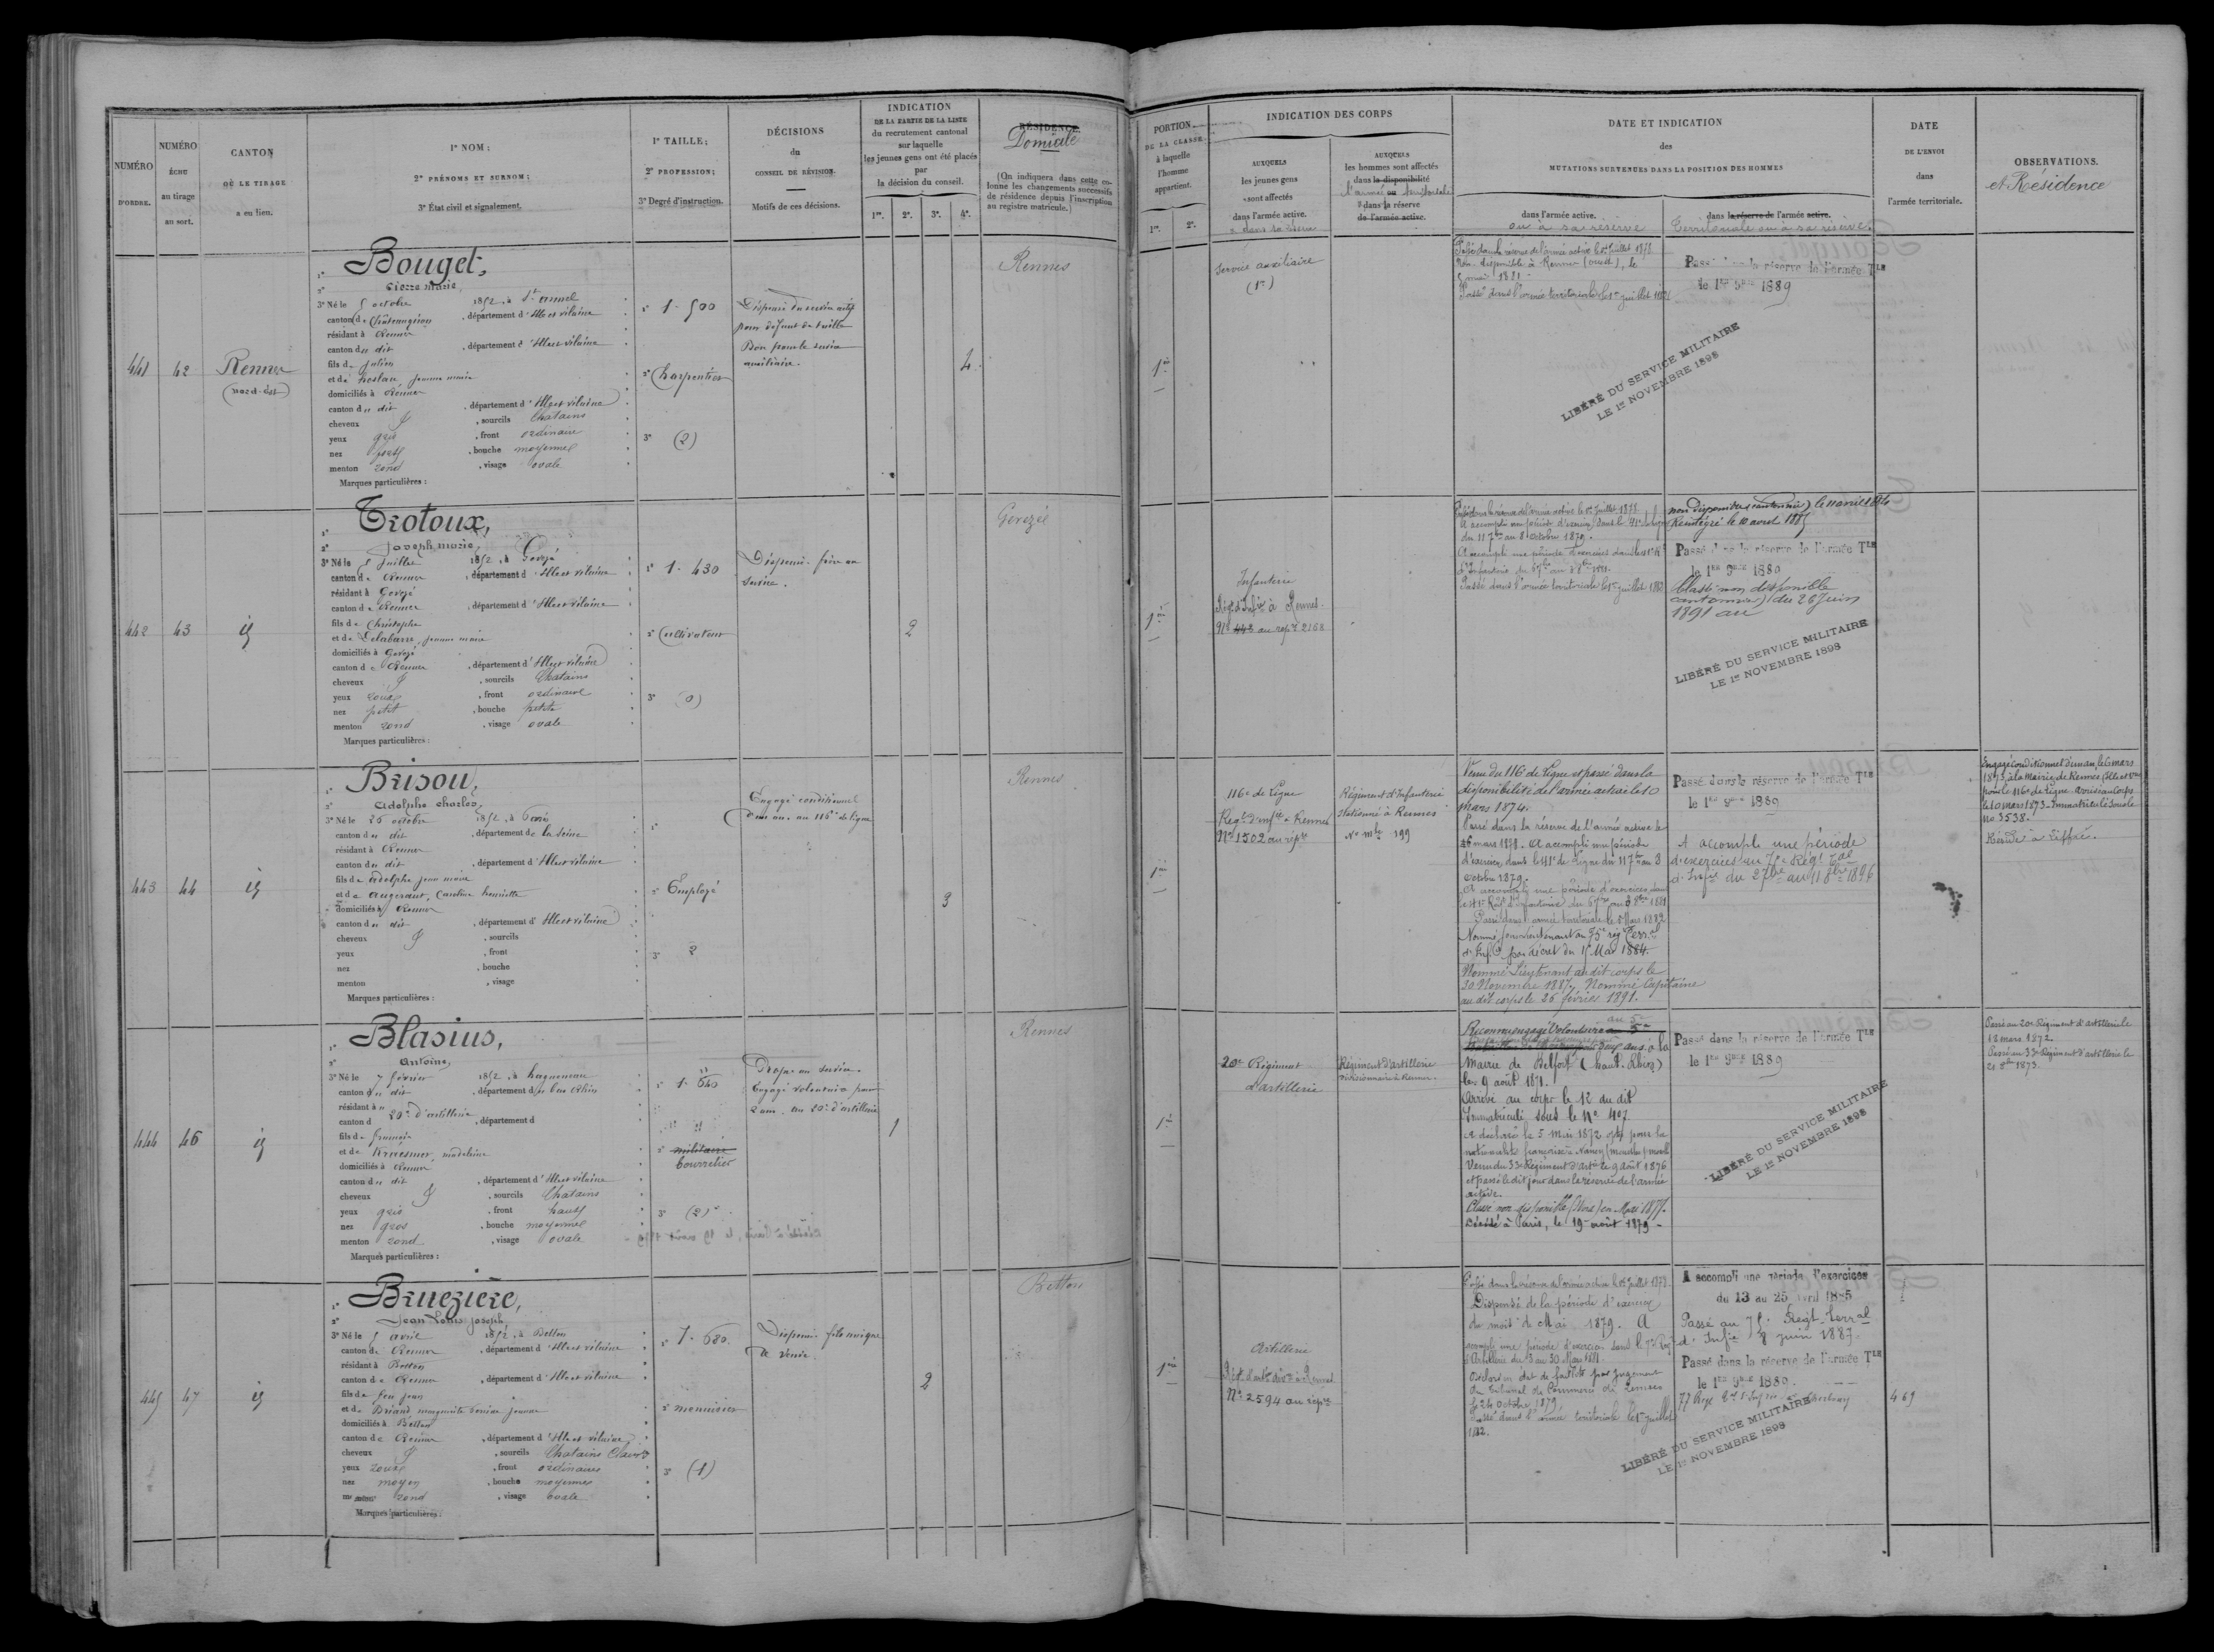 NUMÉRO
D'ORDRE.
NUMÉRO
ÉCHU
au tirage
au sort.
CANTON
OÙ LE TIRAGE
a eu lieu.
1° NOM;
2° PRÉNOMS ET SURNOM;
3° État civil et signalement.
1° TAILLE;
2° PROFESSION;
3° Degré d'instruction.
DÉCISIONS
du
CONSEIL DE RÉVISION.
Motifs de ces décisions.
INDICATION
DE LA PARTIE DE LA LISTE
du recrutement cantonal
sur laquelle
les jeunes gens ont été placés
par
la décision du conseil.
1re. 2e. 3e. 4e.
RÉSIDENCE.
Domicile
(On indiquera dans cette co-
lonne les changements successifs
de résidence depuis l'inscription
au registre matricule.)
PORTION
DE LA CLASSE
à laquelle
l'homme
appartient.
1re. 2e.
INDICATION DES CORPS
AUXQUELS
les jeunes gens
sont affectés
dans l'armée active.
AUXQUELS
les hommes sont affectés
dans la disponibilité
dans la réserve
de l'armée active.
DATE ET INDICATION
des
MUTATIONS SURVENUES DANS LA POSITION DES HOMMES
dans l'armée active.
ou à sa réserve
dans la réserve de l'armée active.
Territoriale ou à sa réserve.
DATE
DE L'ENVOI
dans
l'armée territoriale.
OBSERVATIONS.
et Résidence
441 42 Rennes
(nord-est)
1° Bouget,
2° Pierre Marie,
3° Né le 5 octobre 1852, à St Armel
canton de Châteaugiron, département d'Ille et vilaine
résidant à Rennes
canton du dit, département d'Ille et vilaine
fils de Julien
et de Jeanne marie
domiciliés à Rennes
canton du dit, département d'Ille et vilaine
cheveux, sourcils Chatains
yeux gris, front ordinaire
nez, bouche moyenne
menton rond, visage ovale
Marques particulières:
1° 1.500
2° Charpentier
3° (2)
Dispensé du service actif
pour défaut de taille
Bon pour le service
auxiliaire.
4
Rennes
1re
Service auxiliaire
Passé dans la réserve de l'armée active le 1er Juillet 1878
Non disponible à Rennes (ouest), le
5 mai 1881
Passé dans l'armée territoriale le 1er juillet 1882
Passé dans la réserve de l'armée Tle
le 1er 9bre 1889
LIBÉRÉ DU SERVICE MILITAIRE
LE 1er NOVEMBRE 1898
442 43 id
1° Trotoux,
2° Joseph marie,
3° Né le 5 Juillet 1852, à Gevezé
canton de Rennes, département d'Ille et vilaine
résidant à Gevezé
canton de Rennes, département d'Ille et vilaine
fils de Christophe
et de Delabarre, Jeanne marie
domiciliés à Gevezé
canton de Rennes, département d'Ille et vilaine
cheveux, sourcils Chatains
yeux roux, front ordinaire
nez petit, bouche petite
menton rond, visage ovale
Marques particulières:
1° 1.430
2° Cultivateur
3° (0)
Dispensé frère au
service.
2
Gevezé
1re
Infanterie
Régt d'Infie à Rennes
No 448 au repre 2168
Passé dans la réserve de l'armée active le 1er Juillet 1878
A accompli une période d'exercices dans le 41e de ligne
du 11 7bre au 8 octobre 1879.
A accompli une période d'exercices dans le 41e Rt
d'Infanterie
Passé dans l'armée territoriale le 1er juillet 1882
non disponible (cantonnier) le 10 avril 1884
Réintégré le 10 avril 1885
Passé dans la réserve de l'armée Tle
le 1er 9bre 1889
Classé non disponible
(cantonnier) du 26 Juin
1891 au
LIBÉRÉ DU SERVICE MILITAIRE
LE 1er NOVEMBRE 1898
443 44 id
1° Brisou,
2° Adolphe Charles,
3° Né le 26 octobre 1852, à Paris
canton du dit, département de la Seine
résidant à Rennes
canton du dit, département d'Ille et vilaine
fils de Adolphe Jean marie
et de Augeraut, Caroline henriette
domiciliés à Rennes
canton du dit, département d'Ille et vilaine
cheveux, sourcils
yeux, front
nez, bouche
menton, visage
Marques particulières:
1°
2° Employé
3° 2
Engagé conditionnel
d'un an. au 116e de ligne
3
Rennes
1re
116e de Ligne
Régt d'Infie à Rennes
No 1502 au répre
Régiment d'Infanterie
Stationné à Rennes
No mle 199
Venu du 116e de Ligne et passé dans la
disponibilité de l'armée active le 10
Mars 1874.
Passé dans la réserve de l'armée active le
16 mars 1878. A accompli une période
d'exercices dans le 41e de Ligne du 11 7bre au 3
Octobre 1879.
A accompli une période d'exercices dans
le 41e Régt d'Infanterie
Passé dans l'armée territoriale le 5 Mars 1882
Nommé sous-lieutenant au 75e rég Terral
d'Infie par décret du 15 Mai 1884.
Nommé Lieutenant au dit corps le
30 Novembre 1887. Nommé Capitaine
au dit corps le 26 février 1891.
Passé dans la réserve de l'armée Tle
le 1er 9bre 1889
A accompli une période
d'exercices au 75e Régt Tal
d'Infie du 27bre au 11 8bre 1896
Engagé Conditionnel d'un an, le 6 mars
1873, à la Mairie de Rennes (Ille et Vne)
pour le 116e de Ligne. Arrivé au Corps
le 10 mars 1873. Immatriculé sous le
No 3538.
444 46 id
1° Blasius,
2° Antoine,
3° Né le 7 février 1852, à haguenau
canton du dit, département du bas Rhin
résidant à
20e d'artillerie
canton d, département d
fils de françois
et de, madeleine
domiciliés à Rennes
canton du dit, département d'Ille et vilaine
cheveux, sourcils Chatains
yeux gris, front haut
nez gros, bouche moyenne
menton rond, visage ovale
Marques particulières:
1° 1.640
2° militaire
bourrelier
3° (2)
Propre au service.
Engagé volontaire pour
2 ans. au 20e d'artillerie
1
Rennes
1re
20e Régiment
d'artillerie
Régiment d'artillerie
divisionnaire à Rennes.
Reconnu engagé Volontaire au 5e
ans à la
Mairie de Belfort (haut-Rhin)
le 9 août 1871.
Arrivé au corps le 12 du dit
Immatriculé sous le No 407.
A déclaré le 5 mai 1872 opté pour la
nationalité française à Nancy (meurthe & moselle)
Venu du 33e Régiment d'artie le 9 août 1876
et passé le dit jour dans la réserve de l'armée
active.
Classé non disponible en Mai 1877.
Décédé à Paris, le 19 août 1879
Passé dans la réserve de l'armée Tle
le 1er 9bre 1889
LIBÉRÉ DU SERVICE MILITAIRE
LE 1er NOVEMBRE 1898
Passé au 20e Régiment d'artillerie le
18 mars 1872
Passé au 33e Régiment d'artillerie le
21 8bre 1873.
445 47 id
1° Bruezière,
2° Jean Louis Joseph,
3° Né le 5 avril 1852, à Betton
canton de Rennes, département d'Ille et vilaine
résidant à Betton
canton de Rennes, département d'Ille et vilaine
fils de feu Jean
et de Briand marguerite Jeanne
domiciliés à Betton
canton de Rennes, département d'Ille et vilaine
cheveux, sourcils Chatains Clairs
yeux roux, front ordinaire
nez moyen, bouche moyenne
menton rond, visage ovale
Marques particulières:
1° 1.680
2° menuisier
3° (1)
Dispensé fils unique
de veuve.
2
Betton
1re
Artillerie
No 2594 au répre
Passé dans la réserve de l'armée active le 1er Juillet 1878
Dispensé de la période d'exercice
du mois de Mai 1879. A
accompli une période d'exercices dans le 7e Régt
d'Artillerie du 3 au 30 Mars 1881
Déclaré en état de faillite par jugement
du tribunal de Commerce de Rennes
le 24 octobre 1879
Passé dans l'armée territoriale le 1er juillet
1882.
A accompli une période d'exercices
du 13 au 25 avril 1885
Passé au 75e Régt terral
d'Infie juin 1887
Passé dans la réserve de l'armée Tle
le 1er 9bre 1889.
LIBÉRÉ DU SERVICE MILITAIRE
LE 1er NOVEMBRE 1898
469